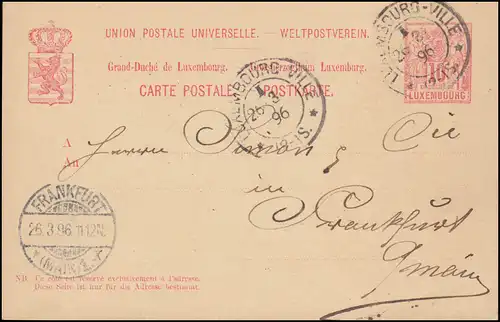 UNION POSTALE UNIVERSELLE. — WELTPOSTVEREIN.
Grand-Duché de Luxembourg. Luxemburg.
CARTE POSTALE. POSTKARTE.
LUXEMBOURG-VILLE
26 3 96
LUXEMBOURG-VILLE
26 3 96
LUXEMBOURG
A
An
Herren Simon & Cie
in
Frankfurt
a/main
FRANKFURT
26.3.96. 11-12N.
(MAIN) 1
NB. Ce côté est réservé exclusivement à l'adresse.
Diese Seite ist nur für die Adresse bestimmt.